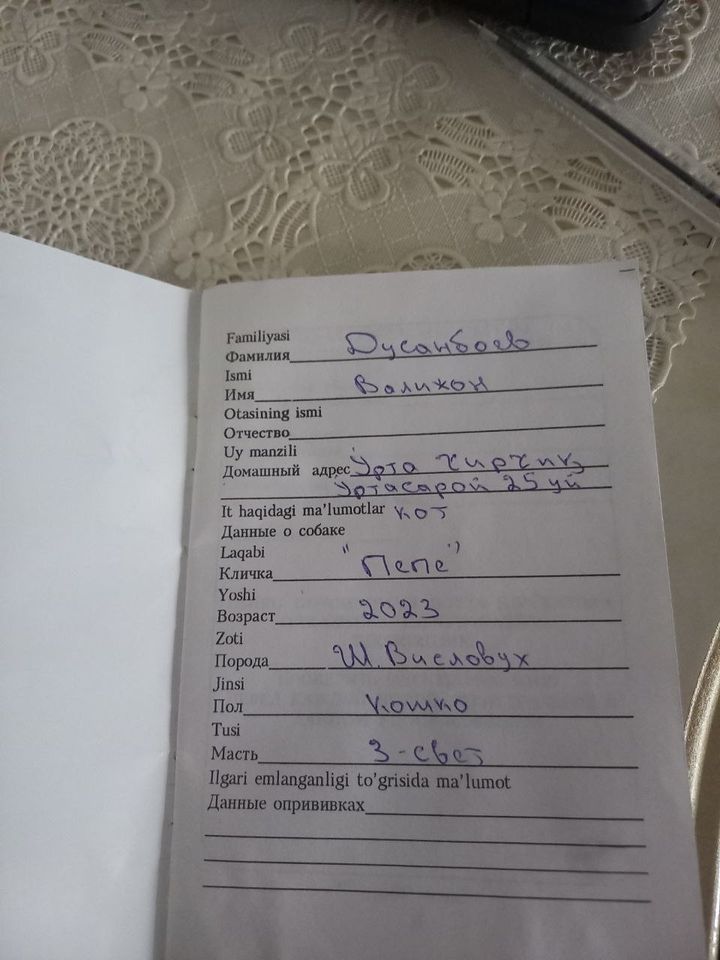 Familiyasi
Фамилия Дусанбоев
Ismi
Имя Валихон
Otasining ismi
Отчество
Uy manzili
Домашный адрес Урта Чирчик,
Уртасарой 25 уй
It haqidagi ma'lumotlar кот
Данные о собаке
Laqabi
Кличка "Пепе"
Yoshi
Возраст 2023
Zoti
Порода Ш. Вислоvух
Jinsi
Пол кошко
Tusi
Масть 3-свет
Ilgari emlanganligi to'grisida ma'lumot
Данные опрививках